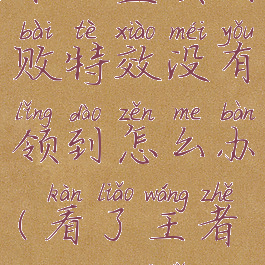 bài tè xiào méi yǒu
败特效没有
lǐng dào zěn me bàn
领到怎么办
kàn liǎo wáng zhě
(看了王者